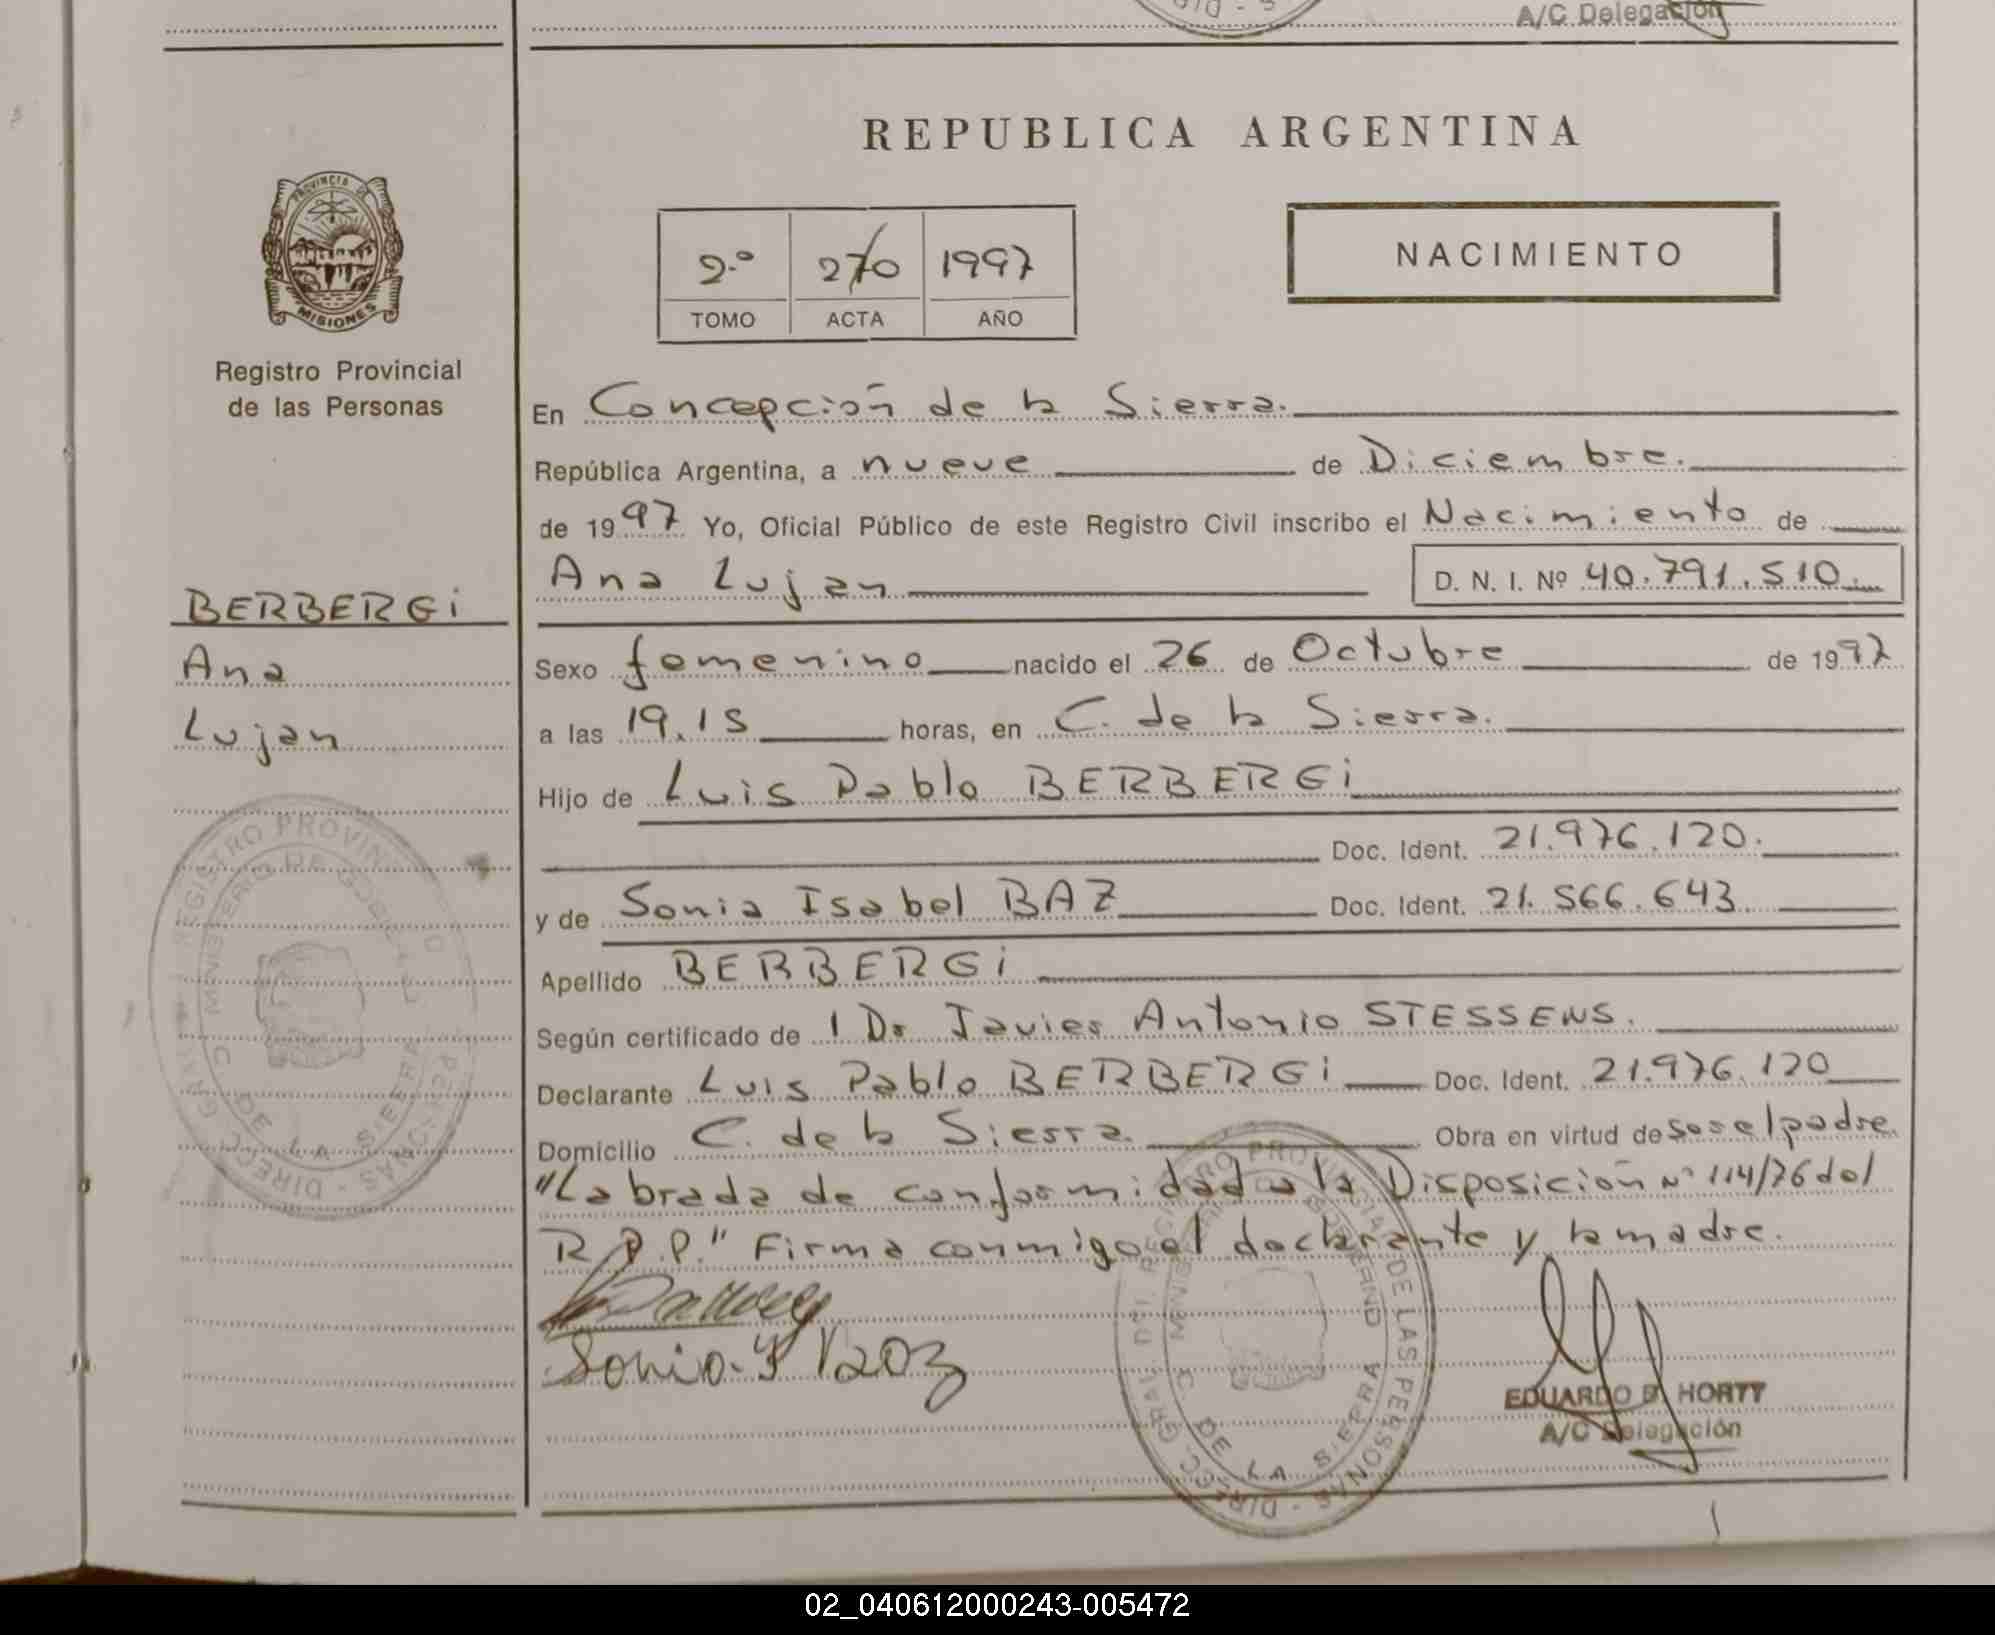 A/C Delegación
REPUBLICA ARGENTINA
PROVINCIA DE
MISIONES
Registro Provincial
de las Personas
2.º 270 1997
TOMO ACTA AÑO
NACIMIENTO
En Concepción de la Sierra.
República Argentina, a nueve de Diciembre.
de 1997 Yo, Oficial Público de este Registro Civil inscribo el Nacimiento de
Ana Lujan D. N. I. Nº 40.791.510.
BERBERGi
Ana
Lujan
Sexo femenino nacido el 26 de Octubre de 1997
a las 19.15 horas, en C. de la Sierra.
Hijo de Luis Pablo BERBERGi
Doc. Ident. 21.976.120.
y de Sonia Isabel BAZ Doc. Ident. 21.566.643
Apellido BERBERGi
Según certificado de 1 Dr Javier Antonio STESSENS.
Declarante Luis Pablo BERBERGi Doc. Ident. 21.976.120
Domicilio C. de la Sierra. Obra en virtud de ser el padre.
"Labrada de conformidad a la Disposición Nº 114/76 del
R.P.P." Firma conmigo el declarante y la madre.
Sonia I Baz
EDUARDO D. HORTT
A/C Delegación
DIRECC. GRAL. DEL REGISTRO PROVINCIAL DE LAS PERSONAS
MINISTERIO DE GOBIERNO
C. DE LA SIERRA
02_040612000243-005472